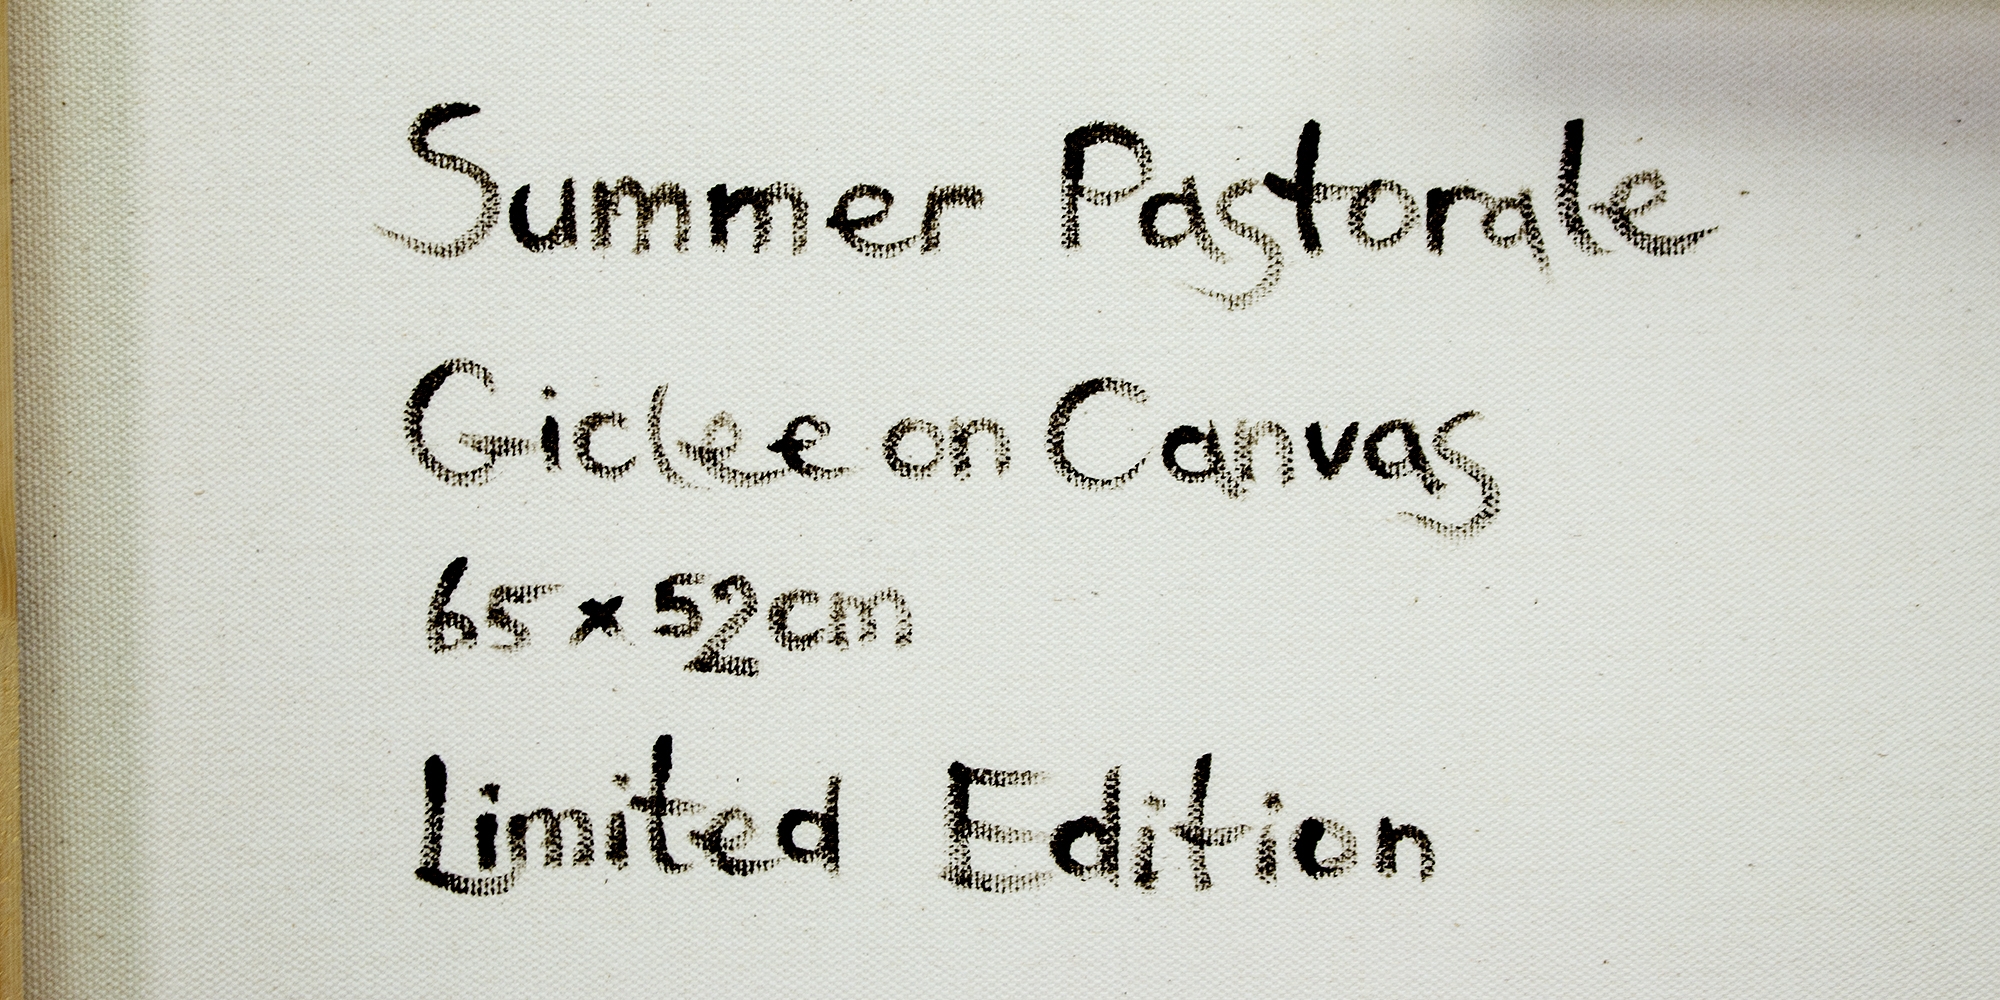 Summer Pastorale
Giclee on Canvas
65 x 52cm
Limited Edition